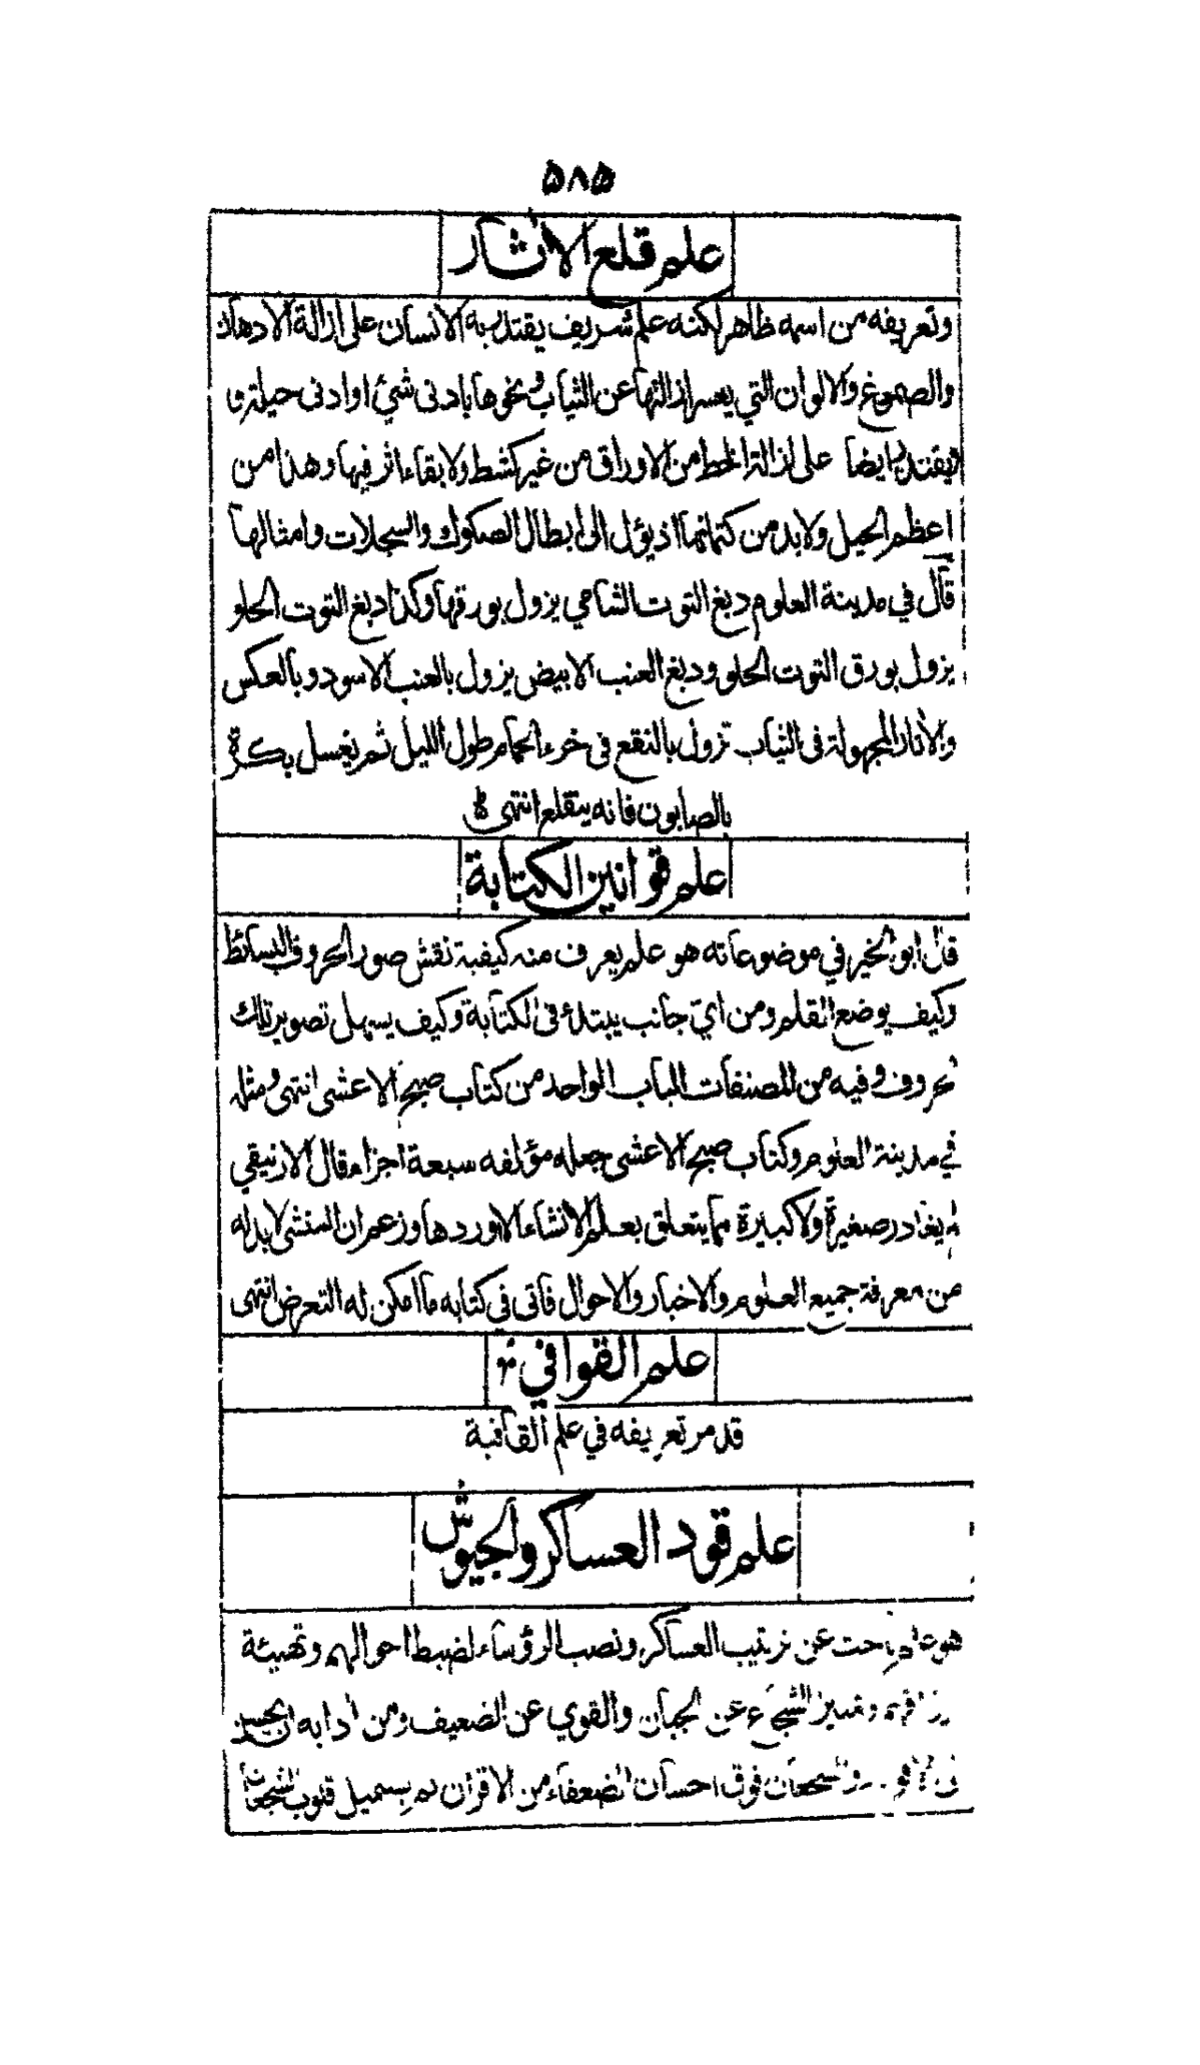 ٥٨٥
علم قلع الاثار
وتعريفه من اسمه ظاهر لكنه علم شريف يقتدر به الانسان على ازالة الادهان
والصموغ والالوان التي يعسر ازالتها عن الثياب ونحوها بادنى شئ او ادنى حيلة و
يقتدر ايضا على ازالة الخط من الاوراق من غير كشط ولا بقاء اثر فيها وهذا من
اعظم الحيل ولا بد من كتمانها اذ يؤل الى ابطال الصكوك والسجلات وامثالها
قال في مدينة العلوم دبغ التوت الشامي يزول بورقها وكذا دبغ التوت الحلو
يزول بورق التوت الحلو ودبغ العنب الابيض يزول بالعنب الاسود وبالعكس
والاثار المجهولة في الثياب تزول بالنقع في خرء الحمام طول الليل ثم يغسل بكرة
بالصابون فانه ينقلع انتهى
علم قوانين الكتابة
قال ابو الخير في موضوعاته هو علم يعرف منه كيفية نقش صور الحروف البسائط
وكيف يوضع القلم ومن اي جانب يبتدأ في الكتابة وكيف يسهل تصوير تلك
الحروف وفيه من المصنفات الباب الواحد من كتاب صبح الاعشى انتهى ومثله
في مدينة العلوم وكتاب صبح الاعشى جعله مؤلفه سبعة اجزاء قال الارنيقي
لم يغادر صغيرة ولا كبيرة مما يتعلق بعلم الانشاء الا اوردها وزعم ان المنشى لا بد له
من معرفة جميع العلوم والاخبار والاحوال فاتى في كتابه ما امكن له التعرض انتهى
علم القوافي
قد مر تعريفه في علم القافية
علم قود العساكر والجيوش
هو علم باحث عن ترتيب العساكر ونصب الرؤساء لضبط احوالهم وتهيئة
وتمييز الشجاع عن الجبان والقوي عن الضعيف ومن ادابه ان يحسن
والشجعان فوق احسان الضعفاء من الاقران ثم يستميل قلوب الشجعان